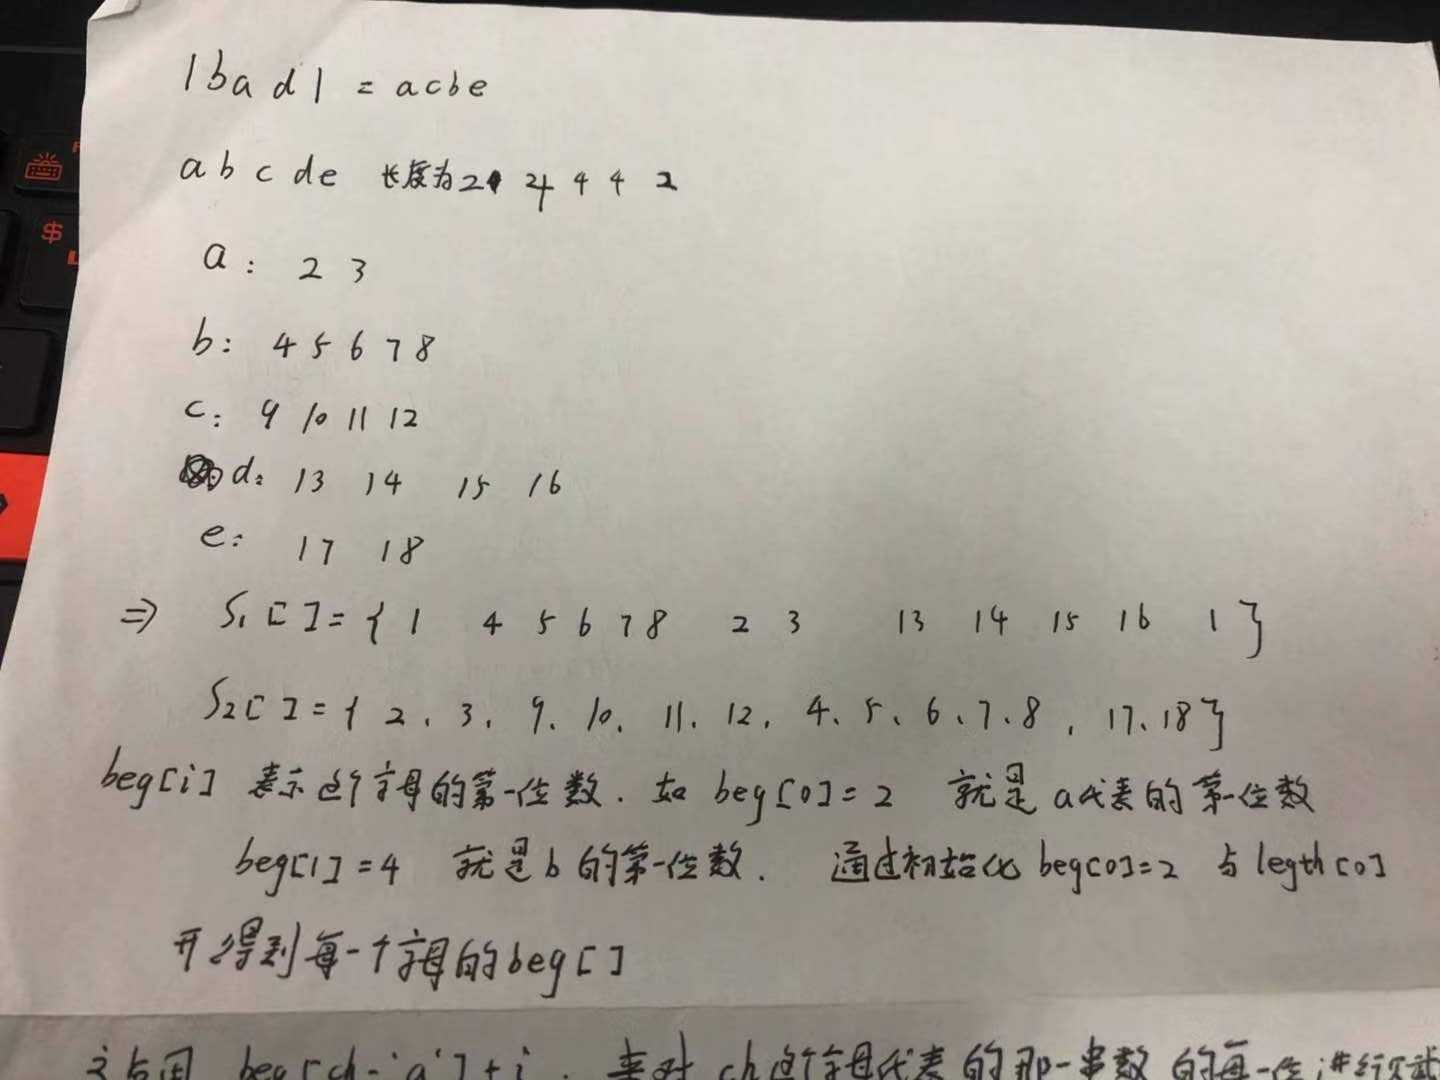 1bad1 = acbe
abcde 长度为2 4 4 4 2
a: 2 3
b: 4 5 6 7 8
c: 9 10 11 12
d: 13 14 15 16
e: 17 18
⇒ S1[]={ 1 4 5 6 7 8 2 3 13 14 15 16 1 }
S2[]={ 2、3、9、10、11、12、4、5、6、7、8、17、18}
beg[i] 表示这个字母的第一位数. 如 beg[0]=2 就是a代表的第一位数
beg[1]=4 就是b的第一位数. 通过初始化 beg[0]=2 与 legth[0]
开得到每一个字母的beg[]
beg[ch-'a']+i. 来对 ch这个字母代表的那一串数的每一位进行
$